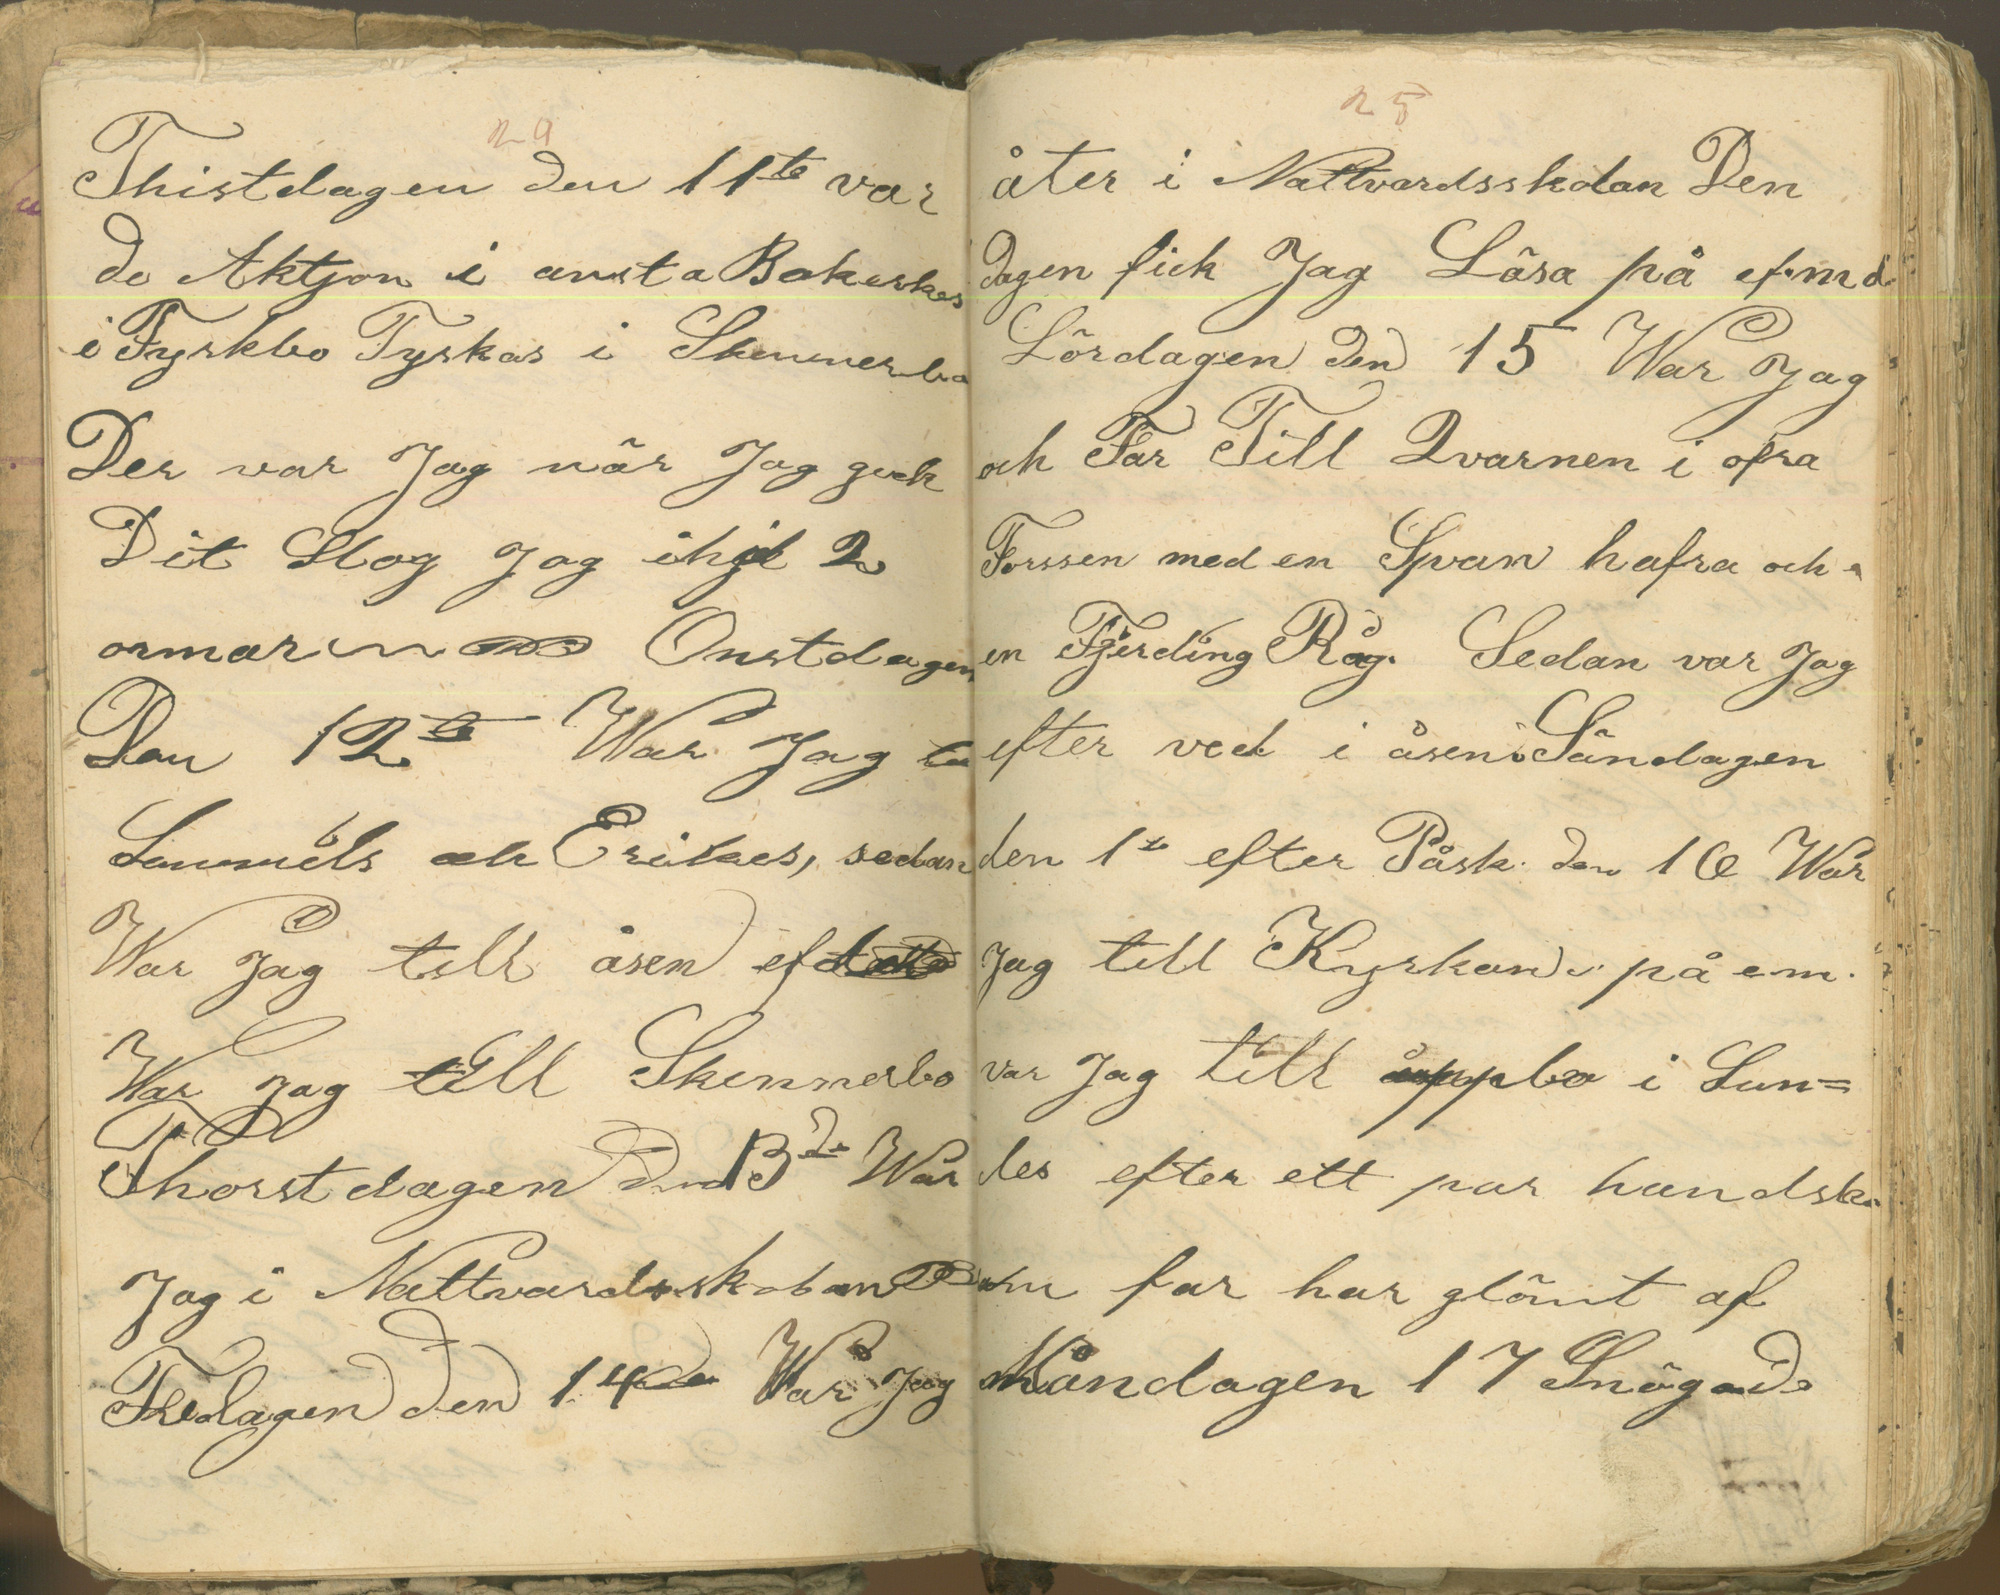 24
Thistdagen den 11te var
de Aktjon i ansta Bakerkes
i Tyrkbo Tyskas i Skinnerbo
Der var Jag när Jag geck
Dit Slog Jag ihjel 2
ormar Onstdagen
Den 12te War Jag
Sammels och Erikes, sedan
War Jag till åsen ef
War Jag till Skinnerbo
Thorstdagen Den 13de War
Jag i Nattvardsskolan
Fredagen den 14de War Jag
25
åter i Nattvardsskolan Den
dagen fick Jag Läsa på ef.md
Lördagen den 15 War Jag
och Far Till Qvarnen i ofra
Forssen med en Span hafra och
en Fjerding Råg. Sedan var Jag
efter ved i åsen Söndagen
den 1te efter Påsk den 16 War
Jag till Kyrkan på em.
var Jag till åppbo i Lun=
des efter ett par handsk
far har glömt af
Måndagen 17 Snögade